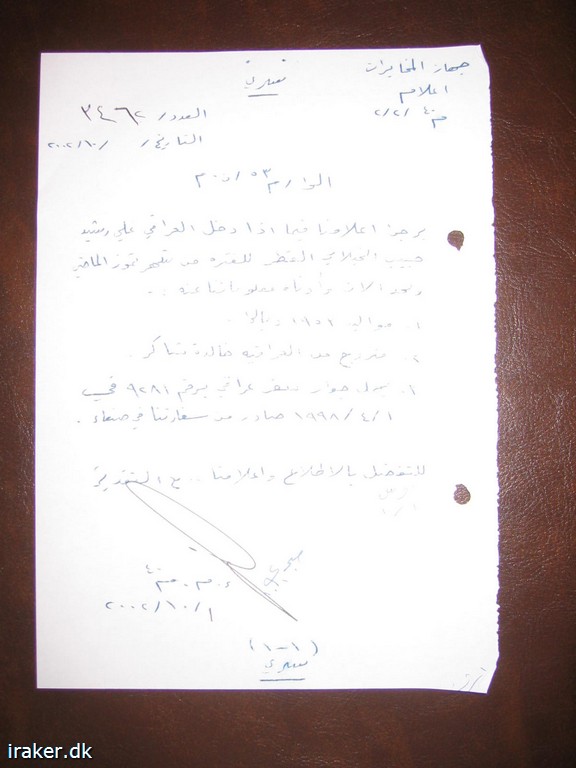 سري
جهاز المخابرات
اعلام
م٤٠/٢/٢
العدد/ ٣٤٦٢
التاريخ/ /٢٠٠٢/١٠
الى / م٥٣
يرجى اعلامنا فيما اذا دخل العراقي علي رشيد
حبيب الجيلاوي القطر للفترة من شهر تموز الماضي
ولحد الآن وأدناه معلوماتنا عنه :.
١. مواليد ١٩٥١
٢. متزوج من العراقية خالدة شاكر.
١. يحمل جواز سفر عراقي برقم ٩٢٨١ في
١٩٩٨/٤/١ صادر من سفارتنا في صنعاء.
للتفضل بالاطلاع واعلامنا .. مع التقدير
م٤٠
٢٠٠٢/١٠/١
(١-١)
سري
iraker.dk